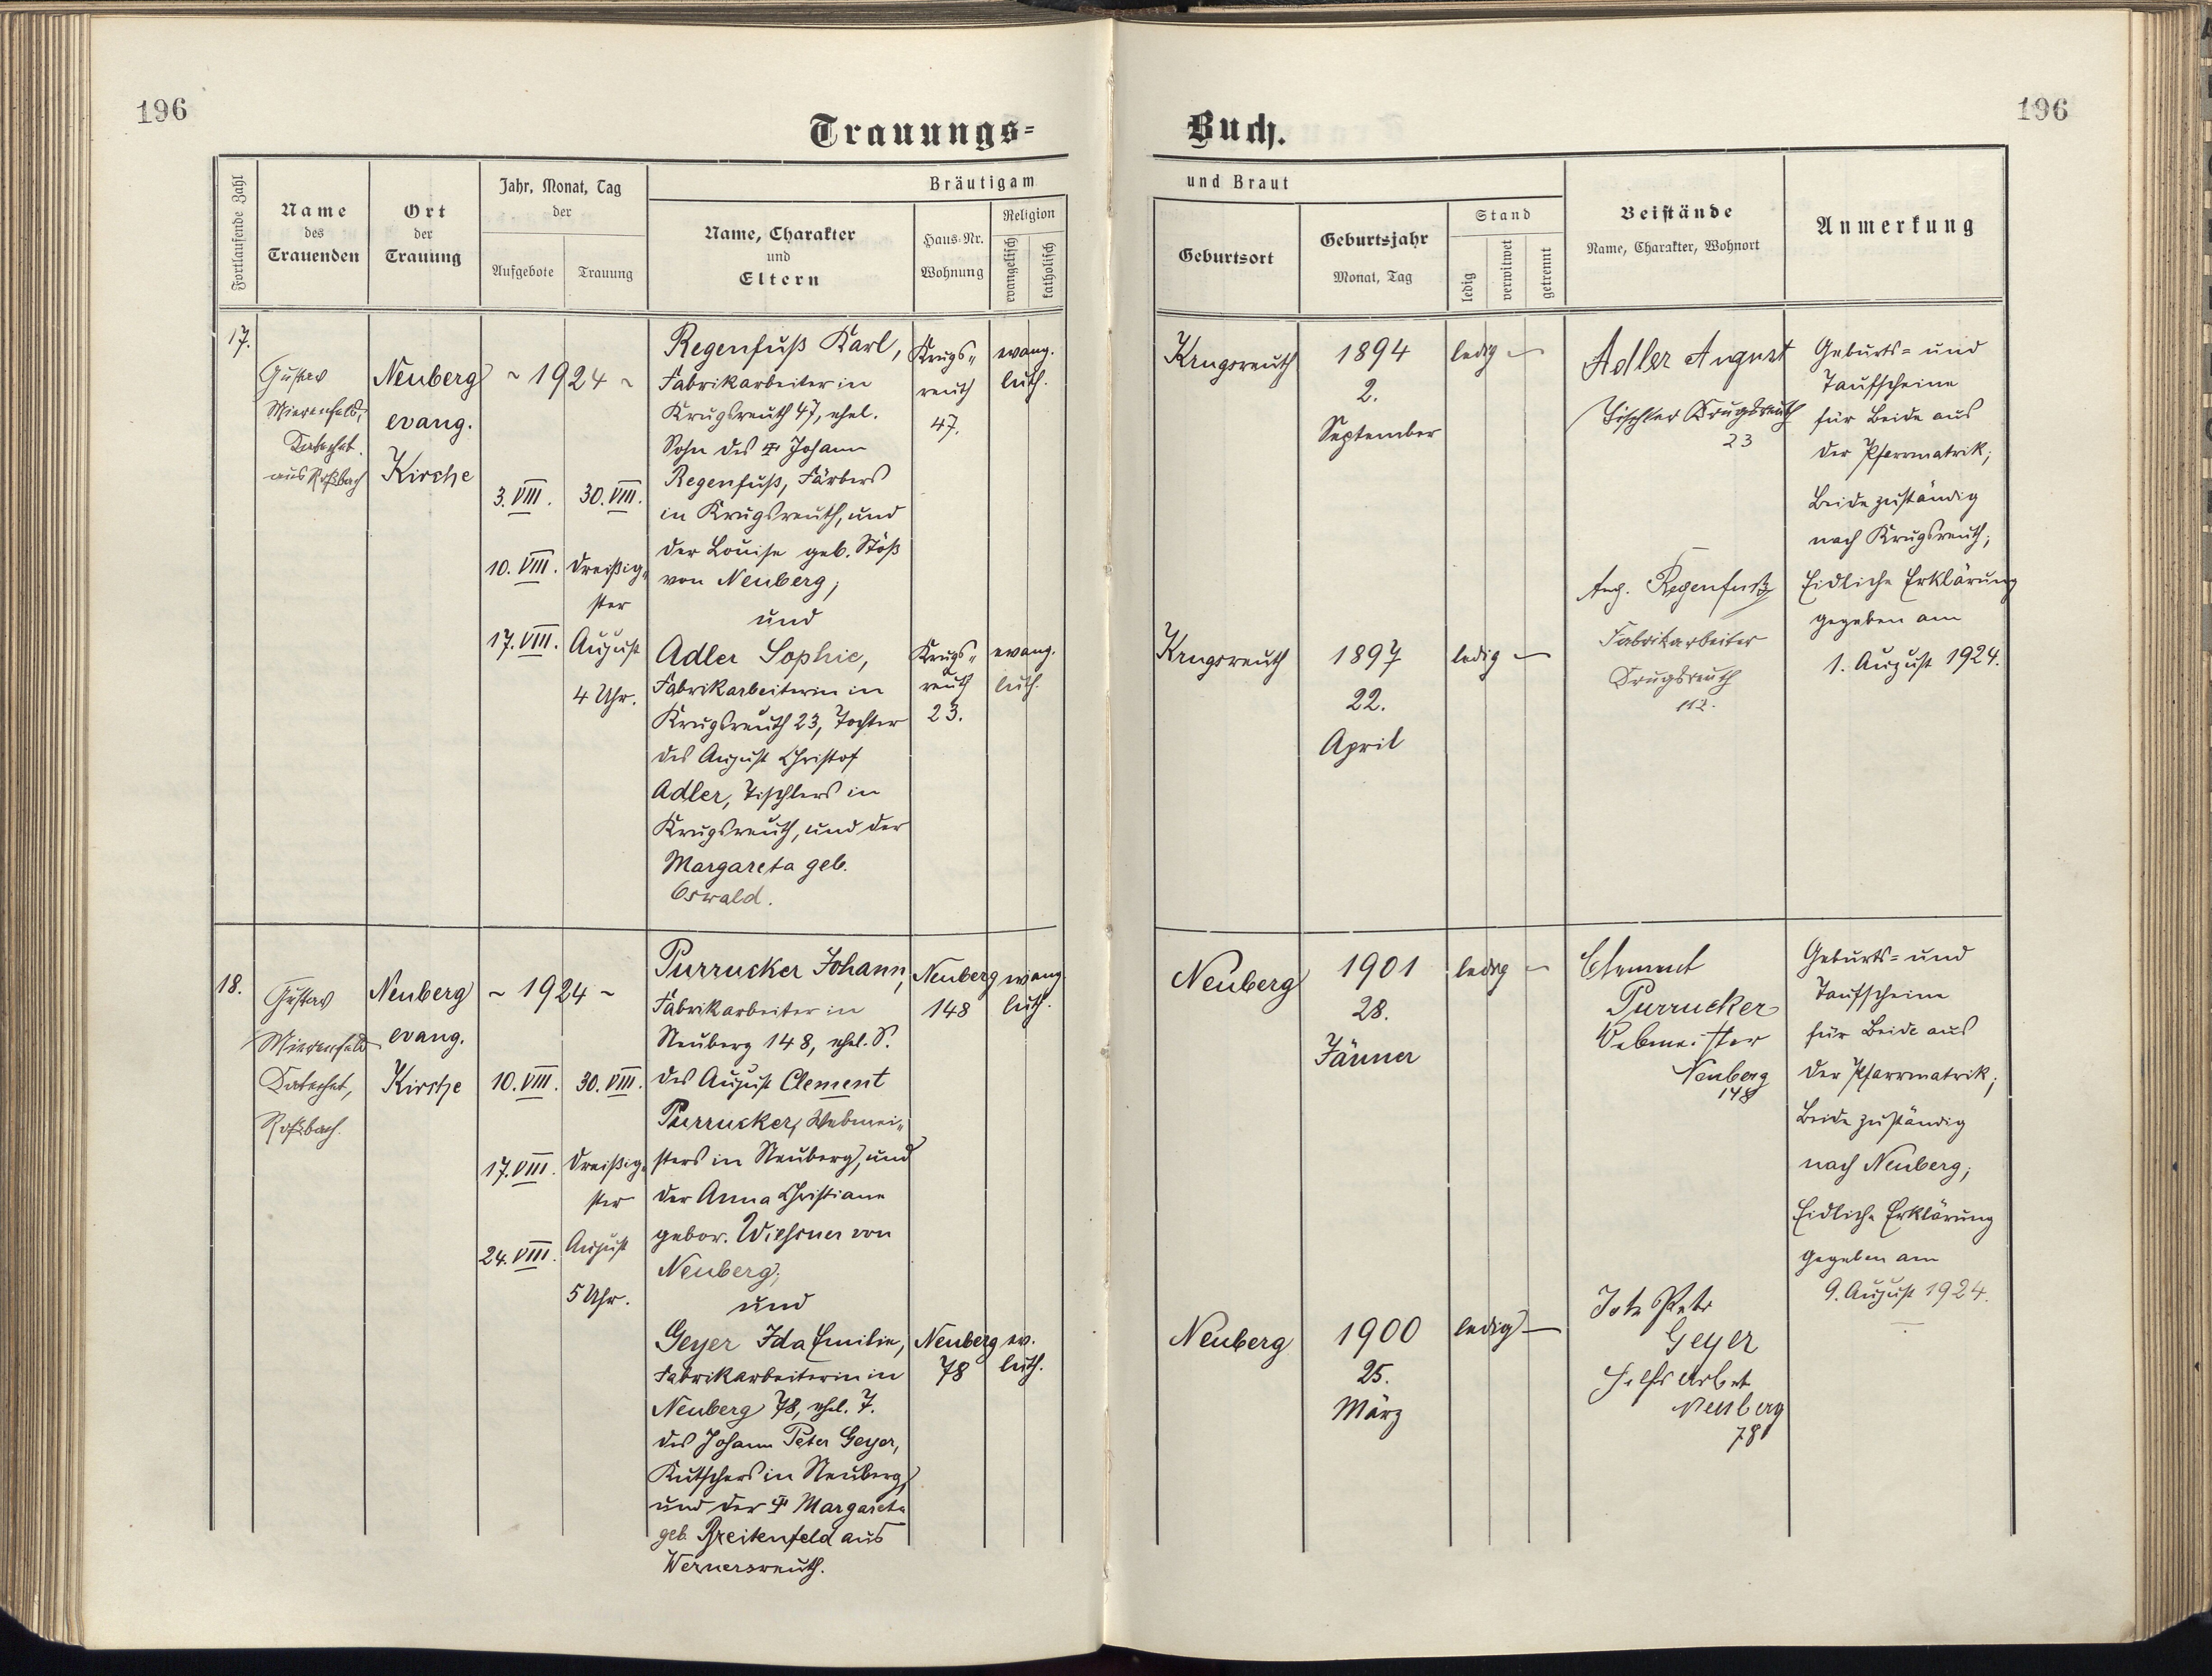 196
196
Trauungs=
Buch.
Fortlaufende Zahl
Name
des
Trauenden
Ort
der
Trauung
Jahr, Monat, Tag
der
Aufgebote
Trauung
Bräutigam
Name, Charakter
und
Eltern
Haus-Nr.
Wohnung
Religion
evangelisch
katholisch
und Braut
Geburtsort
Geburtsjahr
Monat, Tag
Stand
ledig
verwitwet
getrennt
Beistände
Name, Charakter, Wohnort
Anmerkung
17.
Gustav
Katechet
aus Roßbach
Neuberg
evang.
Kirche
~ 1924 ~
3. VIII.
10. VIII.
17. VIII.
30. VIII.
Dreißig„
ster
August
4 Uhr.
Regenfuß Karl,
Fabrikarbeiter in
Krugsreuth 47, ehel.
Sohn des Johann
Regenfuß, Färbers
in Krugsreuth, und
der Louise geb. Stöß
von Neuberg;
und
Adler Sophie,
Fabrikarbeiterin in
Krugsreuth 23, Tochter
des August Christof
Adler, Tischlers in
Krugsreuth, und der
Margareta geb.
Oswald.
Krugs„
reuth
47.
evang.
luth.
Krugs„
reuth
23.
evang.
luth.
Krugsreuth
1894
2.
September
ledig –
Krugsreuth
1897
22.
April
ledig –
Adler August
Tischler Krugsreuth
23
Aug. Regenfuß
Fabrikarbeiter
Krugsreuth
112.
Geburts= und
Taufscheine
für Beide aus
der Pfarrmatrik;
Beide zuständig
nach Krugsreuth;
Eidliche Erklärung
gegeben am
1. August 1924.
18.
Gustav
Katechet,
Roßbach.
Neuberg
evang.
Kirche
~ 1924 ~
10. VIII.
17. VIII.
24. VIII.
30. VIII.
Dreißig„
ster
August
5 Uhr.
Purrucker Johann,
Fabrikarbeiter in
Neuberg 148, ehel. S.
des August Clement
Purrucker, Webmei„
sters in Neuberg, und
der Anna Christiane
gebor. von
Neuberg;
und
Geyer Ida Emilie,
Fabrikarbeiterin in
Neuberg 78, ehel. T.
des Johann Peter Geyer,
Kutschers in Neuberg,
und der Margareta
geb. Breitenfeld aus
Wernersreuth.
Neuberg
148
evang.
luth.
Neuberg
78
ev.
luth.
Neuberg
1901
28.
Jänner
ledig –
Neuberg
1900
25.
März
ledig –
Clement
Purrucker
Webmeister
Neuberg
148
Geyer
Neuberg
78
Geburts= und
Taufscheine
für Beide aus
der Pfarrmatrik;
Beide zuständig
nach Neuberg;
Eidliche Erklärung
gegeben am
9. August 1924.